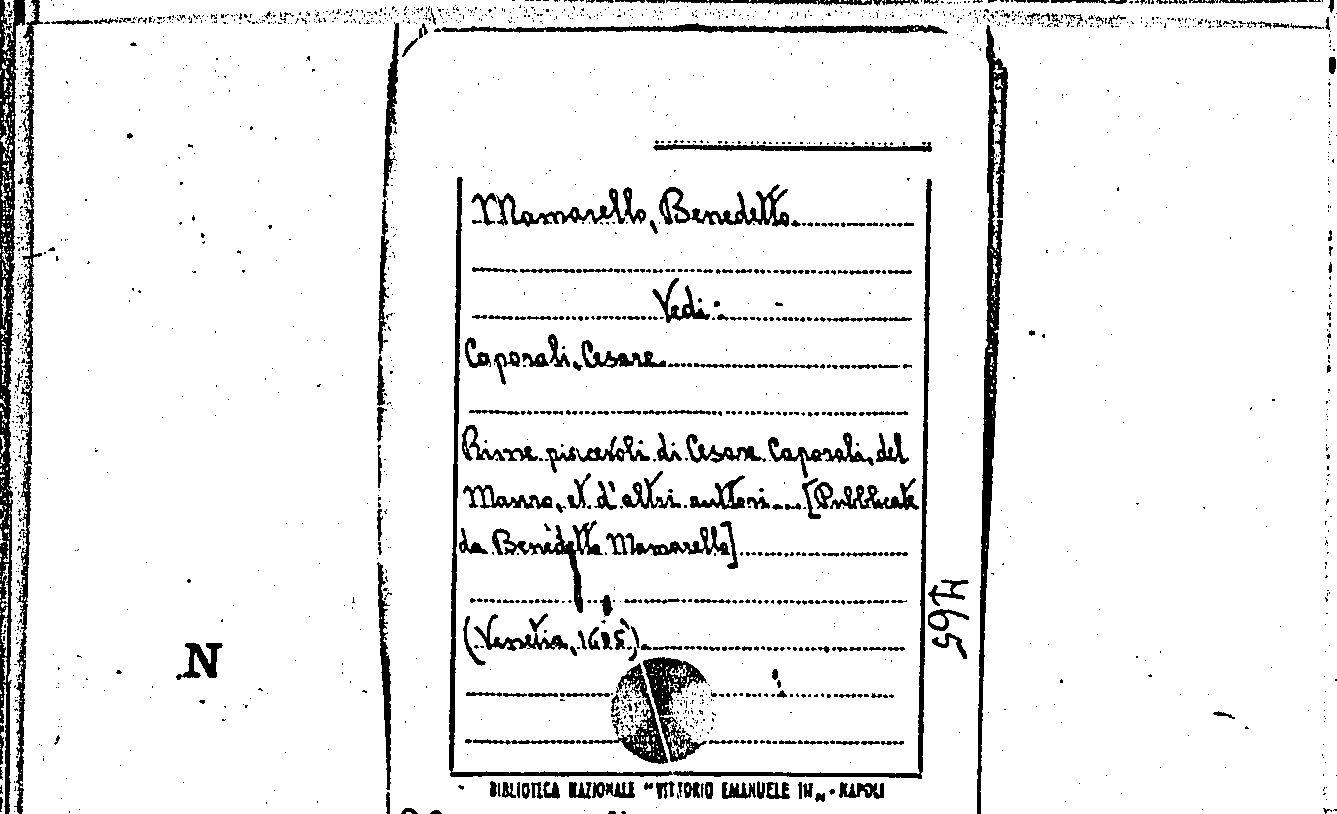 Mamarello, Benedetto.
Vedi:
Caporali, Cesare
Rime piacevoli di Cesare Caporali, del
Mauro, et d'altri auttori.... [Pubblicate
da Benedetto Mamarello]
(Venetia,
465
N
BIBLIOTECA NAZIONALE "VITTORIO EMANUELE III„ - NAPOLI